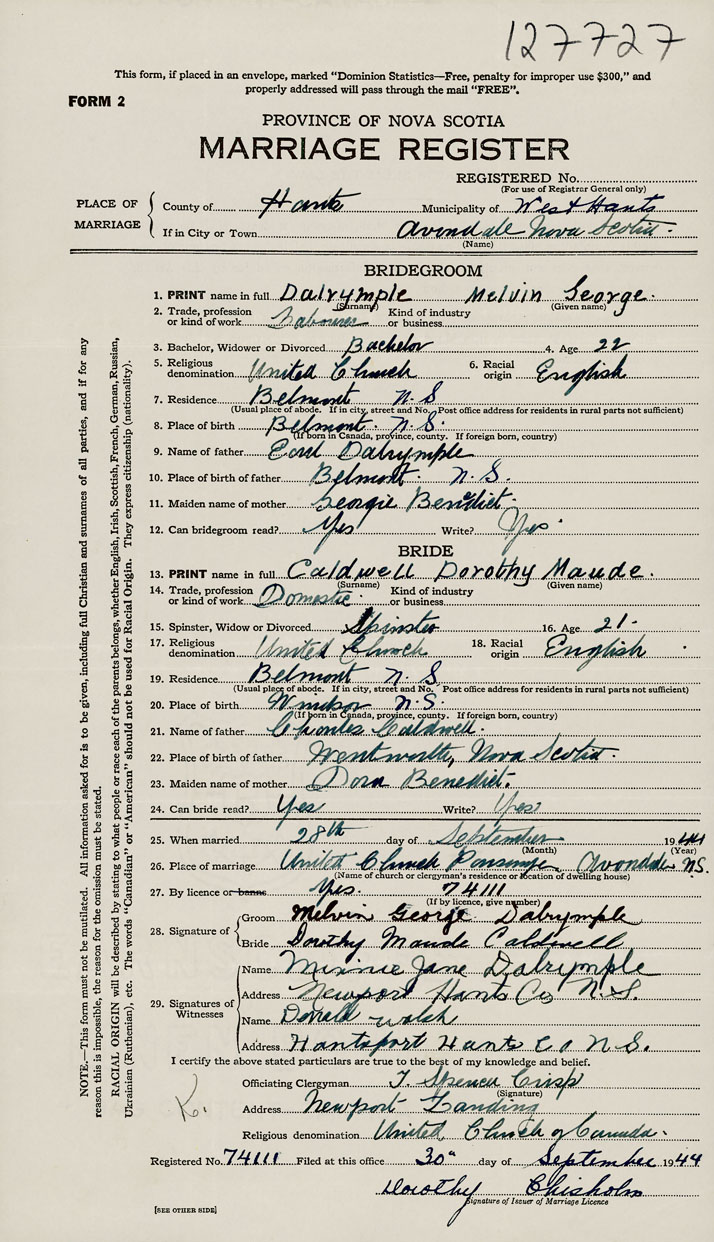 127727
This form, if placed in an envelope, marked "Dominion Statistics—Free, penalty for improper use $300," and
properly addressed will pass through the mail "FREE".
FORM 2
PROVINCE OF NOVA SCOTIA
MARRIAGE REGISTER
REGISTERED No.
(For use of Registrar General only)
PLACE OF MARRIAGE
County of Hants Municipality of West Hants
If in City or Town Avondale Nova Scotia.
(Name)
BRIDEGROOM
1. PRINT name in full Dalrymple Melvin George.
(Surname) (Given name)
2. Trade, profession or kind of work Labourer Kind of industry or business
3. Bachelor, Widower or Divorced Bachelor 4. Age 22
5. Religious denomination United Church 6. Racial origin English
7. Residence Belmont N.S
(Usual place of abode. If in city, street and No. Post office address for residents in rural parts not sufficient)
8. Place of birth Belmont. N.S.
(If born in Canada, province, county. If foreign born, country)
9. Name of father Earl Dalrymple
10. Place of birth of father Belmont. N.S.
11. Maiden name of mother Georgie Benedict.
12. Can bridegroom read? Yes Write? Yes.
BRIDE
13. PRINT name in full Caldwell Dorothy Maude.
(Surname) (Given name)
14. Trade, profession or kind of work Domestic. Kind of industry or business
15. Spinster, Widow or Divorced Spinster 16. Age 21.
17. Religious denomination United Church 18. Racial origin English
19. Residence Belmont N.S
(Usual place of abode. If in city, street and No. Post office address for residents in rural parts not sufficient)
20. Place of birth Windsor N.S.
(If born in Canada, province, county. If foreign born, country)
21. Name of father Charles Caldwell.
22. Place of birth of father Wentworth, Nova Scotia.
23. Maiden name of mother Dora Benedict.
24. Can bride read? Yes Write? Yes
25. When married 28th day of September 1944
(Month) (Year)
26. Place of marriage United Church Parsonage, Avondale N.S.
(Name of church or clergyman's residence or location of dwelling house)
27. By licence or banns Yes. 74111
(If by licence, give number)
28. Signature of Groom Melvin George Dalrymple
Bride Dorothy Maude Caldwell
29. Signatures of Witnesses Name Minnie Jane Dalrymple
Address Newport Hants Co N.S.
Name Donald Walsh
Address Hantsport Hants Co N.S.
I certify the above stated particulars are true to the best of my knowledge and belief.
Officiating Clergyman T Spencer Crisp
(Signature)
Address Newport Landing
Religious denomination United Church of Canada.
Registered No. 74111 Filed at this office 30th day of September 1944
Dorothy Chisholm
Signature of Issuer of Marriage Licence
[SEE OTHER SIDE]
K.
NOTE.—This form must not be mutilated. All information asked for is to be given, including full Christian and surnames of all parties, and if for any
reason this is impossible, the reason for the omission must be stated.
RACIAL ORIGIN will be described by stating to what people or race each of the parents belongs, whether English, Irish, Scottish, French, German, Russian,
Ukrainian (Ruthenian), etc. The words "Canadian" or "American" should not be used for Racial Origin. They express citizenship (nationality).